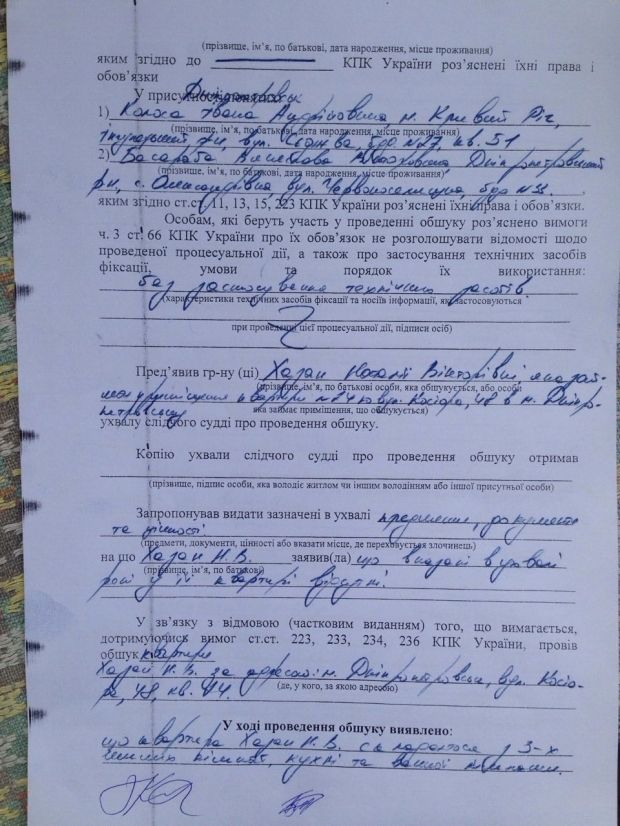 (прізвище, ім'я, по батькові, дата народження, місце проживання)
яким згідно до КПК України роз'яснені їхні права і
обов'язки
У присутності понятих:
1) Колха Івана м. Кривий Ріг,
(прізвище, ім'я, по батькові, дата народження, місце проживання)
р-н, вул. буд. №27, кв. 51
2) Басараба Дніпропетровський
(прізвище, ім'я, по батькові, дата народження, місце проживання)
р-н, с. Олександрівка, вул. Червоноселищна, буд №
яким згідно ст.ст. 11, 13, 15, 223 КПК України роз'яснені їхні права і обов'язки.
Особам, які беруть участь у проведенні обшуку роз'яснено вимоги
ч. 3 ст. 66 КПК України про їх обов'язок не розголошувати відомості щодо
проведеної процесуальної дії, а також про застосування технічних засобів
фіксації, умови та порядок їх використання:
без застосування технічних засобів
(характеристики технічних засобів фіксації та носіїв інформації, які застосовуються
при проведенні цієї процесуальної дії, підписи осіб)
Пред'явив гр-ну (ці) Хазан Наталії Вікторівні, яка зай-
(прізвище, ім'я, по батькові особи, яка обшукується, або особи
має приміщення квартири по вул. Косіора, 48 в м. Дніпро-
яка займає приміщення, що обшукується)
петровську
ухвалу слідчого судді про проведення обшуку.
Копію ухвали слідчого судді про проведення обшуку отримав
(прізвище, підпис особи, яка володіє житлом чи іншим володінням або іншої присутньої особи)
Запропонував видати зазначені в ухвалі предмети, документи
та цінності.
(предмети, документи, цінності або вказати місце, де переховується злочинець)
на що Хазан Н.В. заявив(ла) що вказані в ухвалі
(прізвище, ім'я, по батькові)
речі у її квартирі відсутні.
У зв'язку з відмовою (частковим виданням) того, що вимагається,
дотримуючись вимог ст.ст. 223, 233, 234, 236 КПК України, провів
обшук квартири
Хазан Н.В. за адресою: м. Дніпропетровськ, вул. Косіо-
ра, 48, кв.
(де, у кого, за якою адресою)
У ході проведення обшуку виявлено:
що квартира Хазан Н.В. складається з 3-х
кімнат, кухні та ванної кімнати.